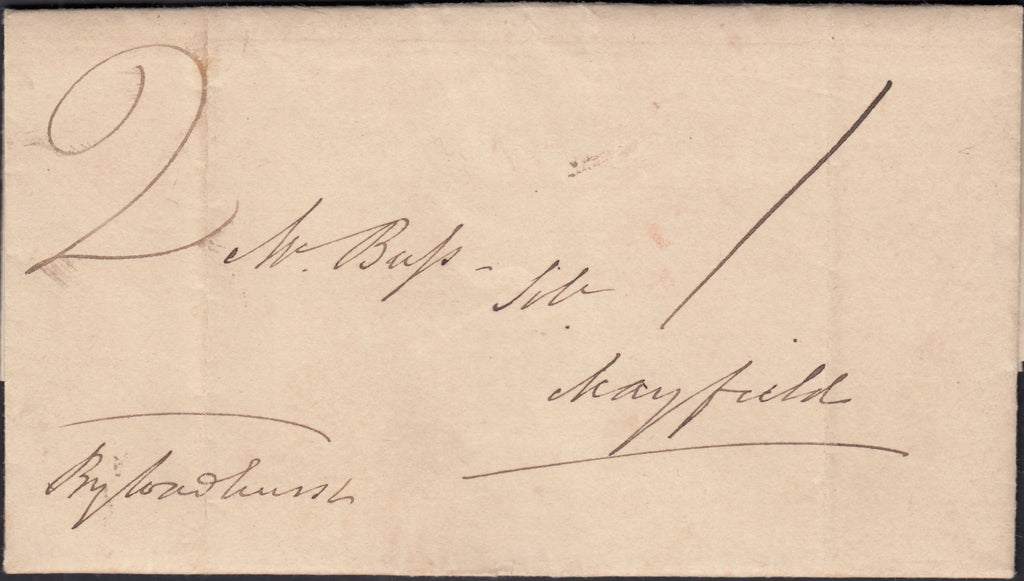 2
/
Mr. Buſs -
Solr
Mayfield
By Wadhurst